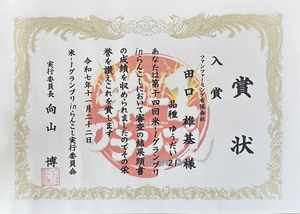 賞状
入賞
ファンファームシブ有限会社
田口 雄基 様
品種 ゆうだい21
あなたは第十四回米-1グランプリ
inらんこしにおいて審査の結果頭書
の成績を収められましたのでその栄
誉を讃えこれを賞します
令和七年十一月二十二日
米-1グランプリinらんこし実行委員会
実行委員長 向山 博